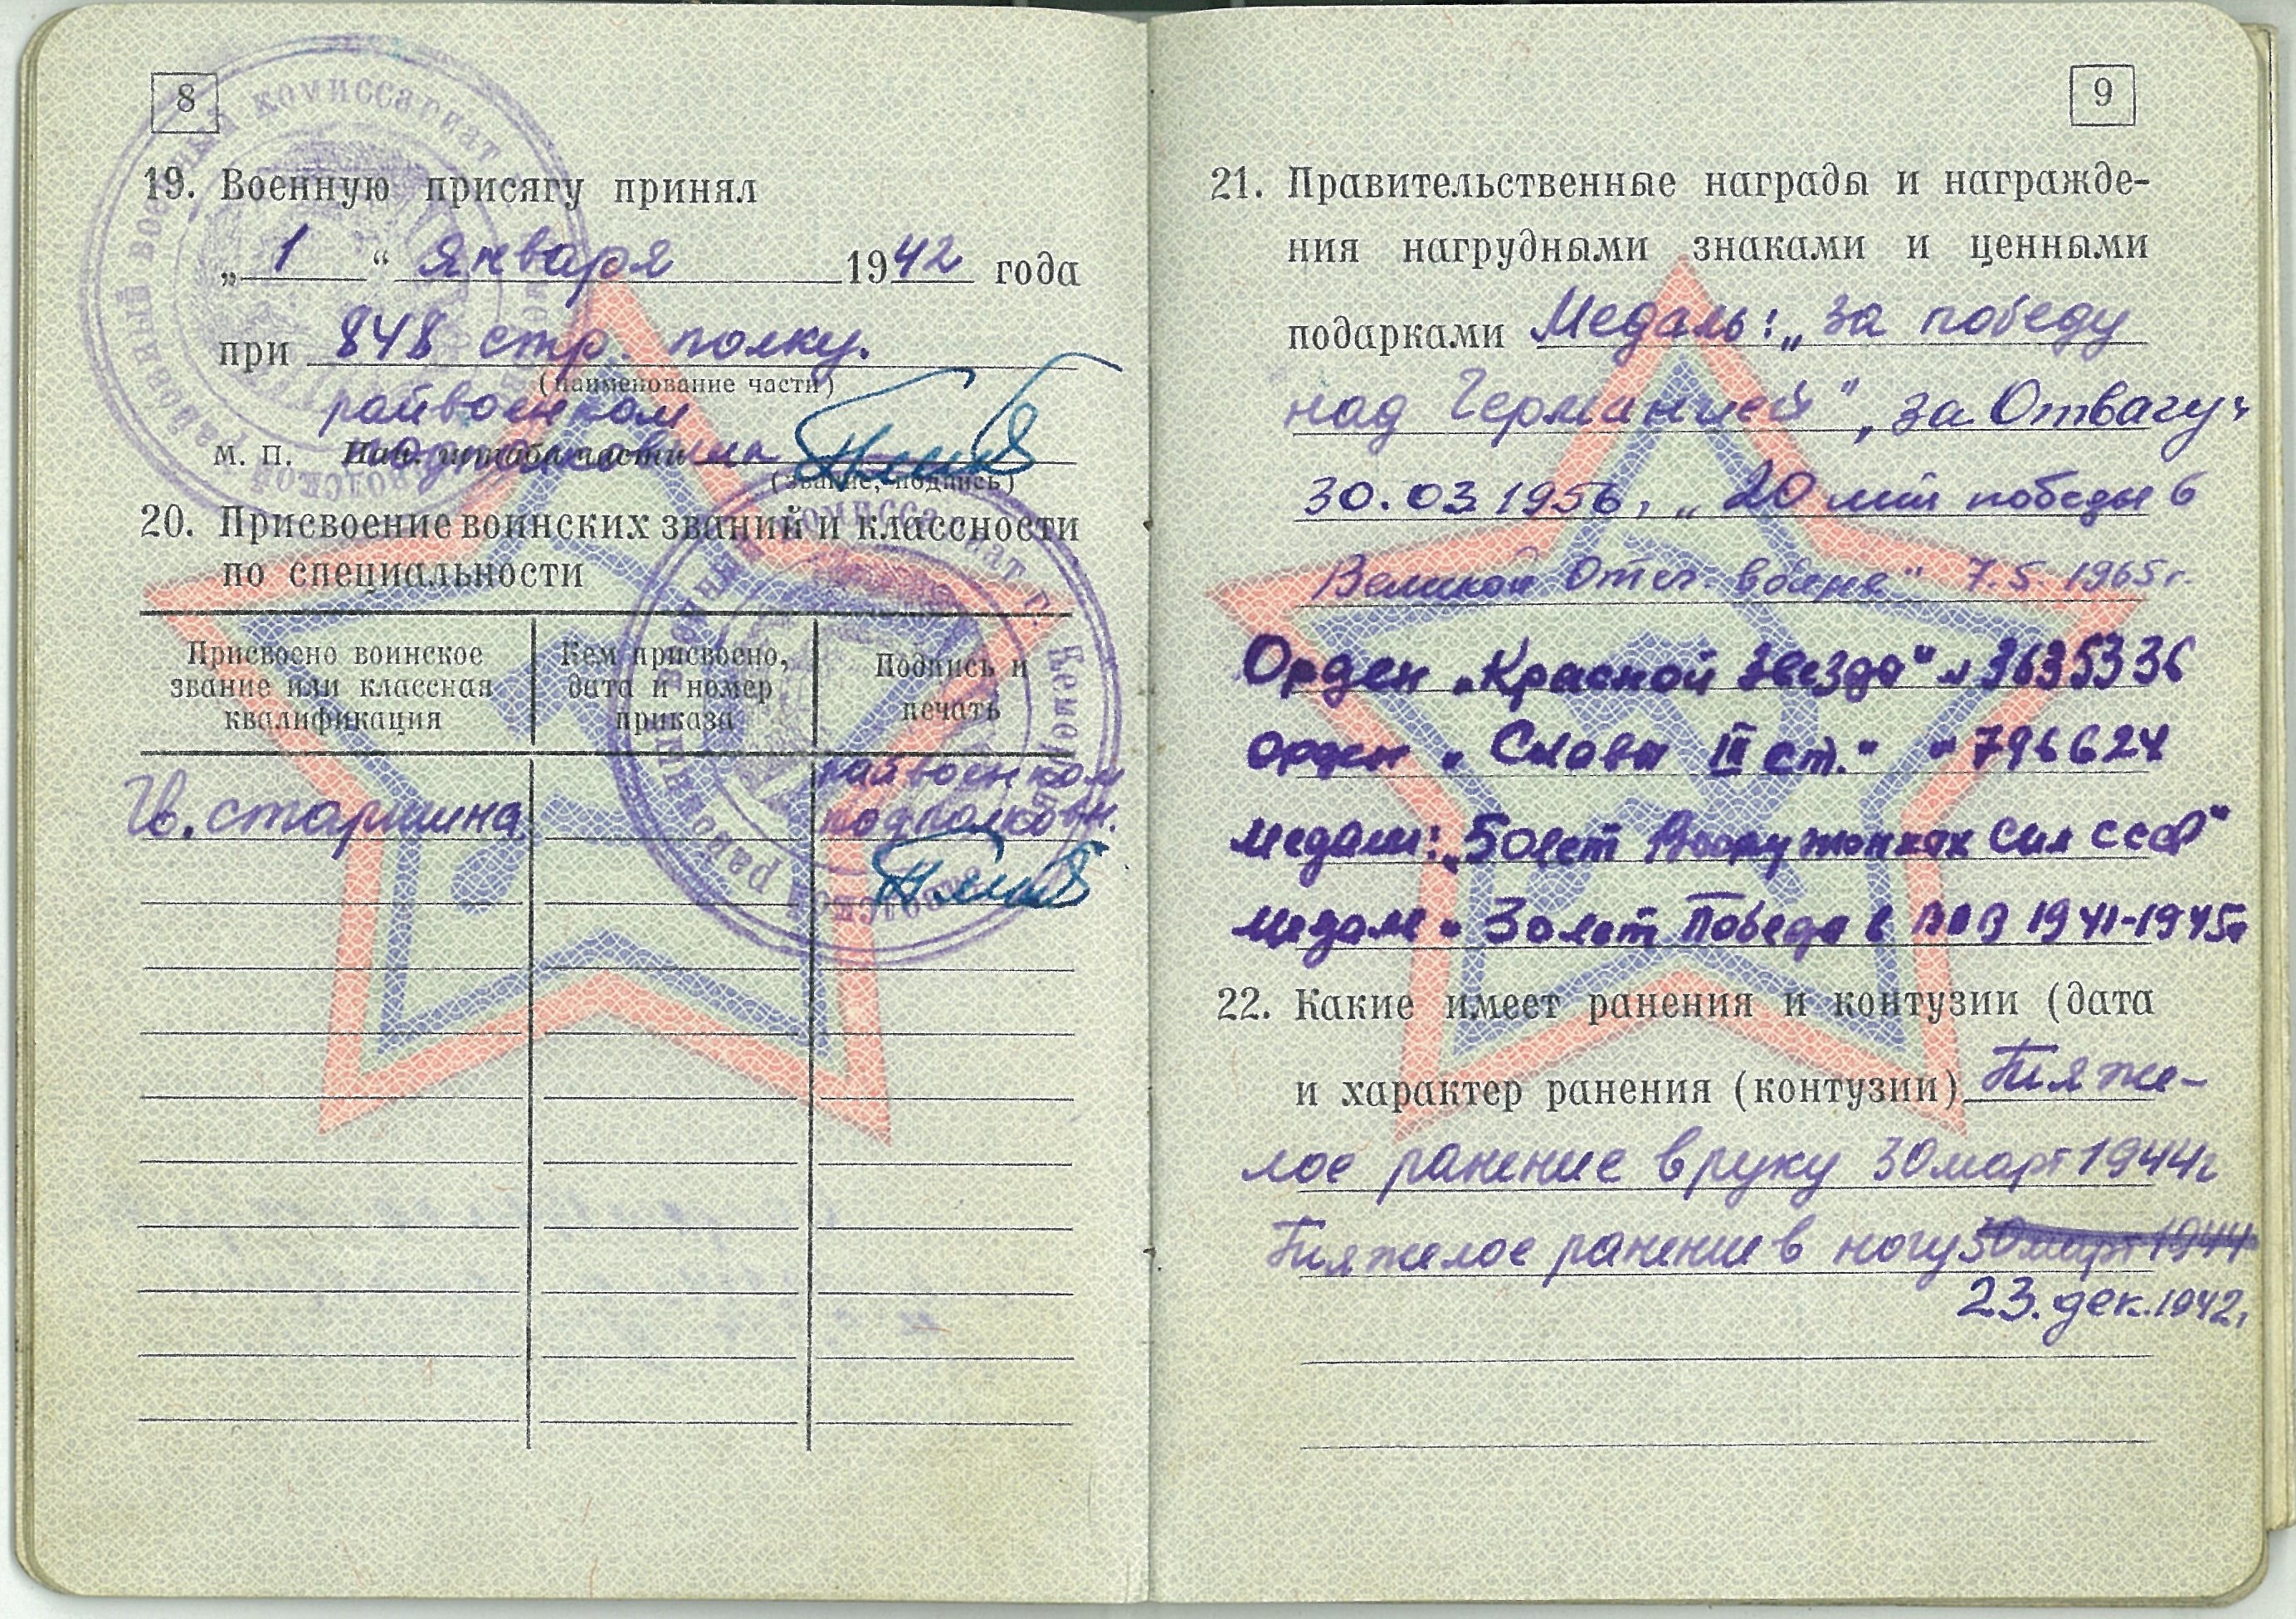 8
19. Военную присягу принял
„ 1 “ января 1942 года
при 848 стр. полку.
(наименование части)
райвоенком
м. п. Нач. штаба части
(звание, подпись)
20. Присвоение воинских званий и классности
по специальности
Присвоено воинское звание или классная квалификация
Кем присвоено, дата и номер приказа
Подпись и печать
райвоенком
Гв. старшина
подполковн.
9
21. Правительственные награды и награжде-
ния нагрудными знаками и ценными
подарками Медаль: „за победу
над Германией", „за Отвагу"
30.03 1956, „20 лет победы в
Великой Отеч. войне" 7.5.1965г.
Орден „Красной Звезда" № 3635336
орден „Славы III ст." " 796624
медаль: „50 лет Вооруженных Сил СССР"
медаль " 30 лет Победа в ВОВ 1941-1945г
22. Какие имеет ранения и контузии (дата
и характер ранения (контузии) Тяже-
лое ранение в руку 30 март 1944г
Тяжелое ранение в ногу 30 март 1944
23. дек. 1942г